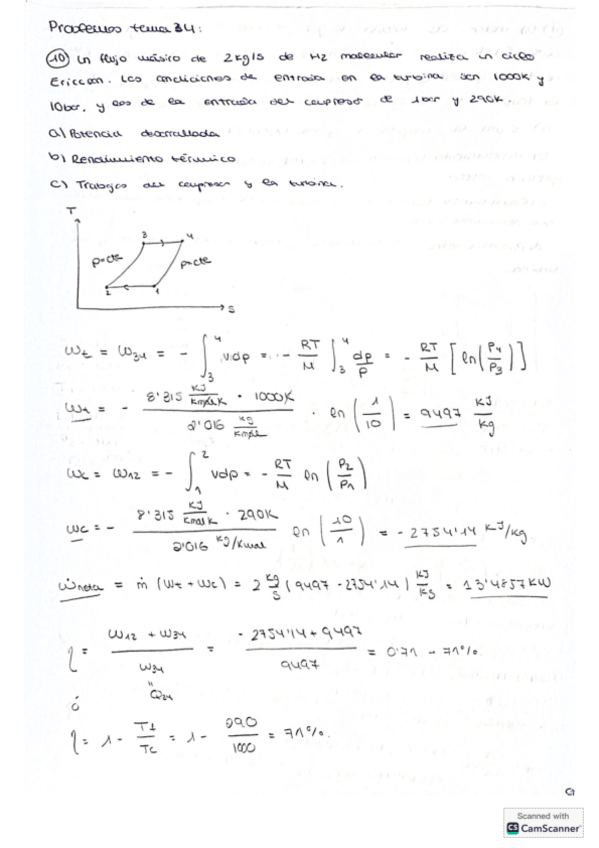 Problemas tema 34:
(10) Un flujo másico de 2kg/s de H2 molecular realiza un ciclo
Ericcson. Las condiciones de entrada en la turbina son 1000K y
10bar, y las de la entrada del compresor de 1bar y 290K
a) Potencia desarrollada
b) Rendimiento térmico
c) Trabajos del compresor y la turbina.
T
3 4
p=cte p=cte
2 1
S
Wt = W34 = - ∫₃⁴ vdp = - RT/M ∫₃⁴ dp/p = - RT/M [ln(P4/P3)]
Wt = - (8'315 KJ/KmolK · 1000K)/(2'016 kg/Kmol) · ln(1/10) = 9497 KJ/Kg
Wc = W12 = - ∫₁² vdp = - RT/M ln(P2/P1)
Wc = - (8'315 KJ/KmolK · 290K)/(2'016 KJ/Kmol) ln(10/1) = - 2754'14 KJ/Kg
Ẇneta = ṁ (Wt + Wc) = 2 kg/s (9497 - 2754'14) KJ/Kg = 13'4857KW
η = (W12 + W34)/W34 = (- 2754'14 + 9497)/9497 = 0'71 - 71%
"
Q34
ó
η = 1 - Tf/Tc = 1 - 290/1000 = 71%.
Scanned with
CS CamScanner